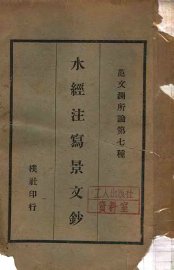 范文澜所論第七種
水經注寫景文鈔
樸社印行
工人出版社
資料室